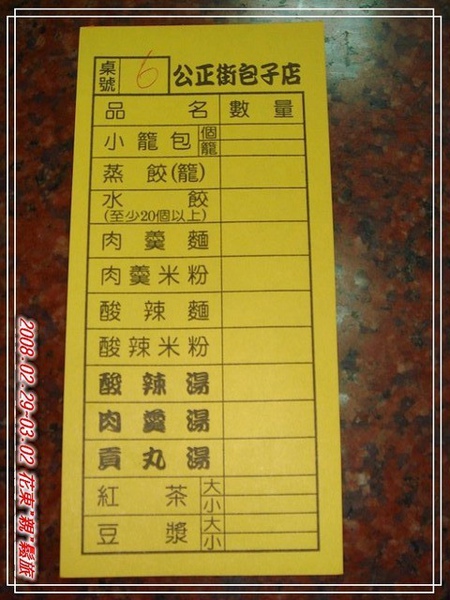 桌號 6 公正街包子店
品名 數量
小籠包 個 籠
蒸餃(籠)
水餃
(至少20個以上)
肉羹麵
肉羹米粉
酸辣麵
酸辣米粉
酸辣湯
肉羹湯
貢丸湯
紅茶 大 小
豆漿 大 小
2008.02.29-03.02 花東"親"鬆旅